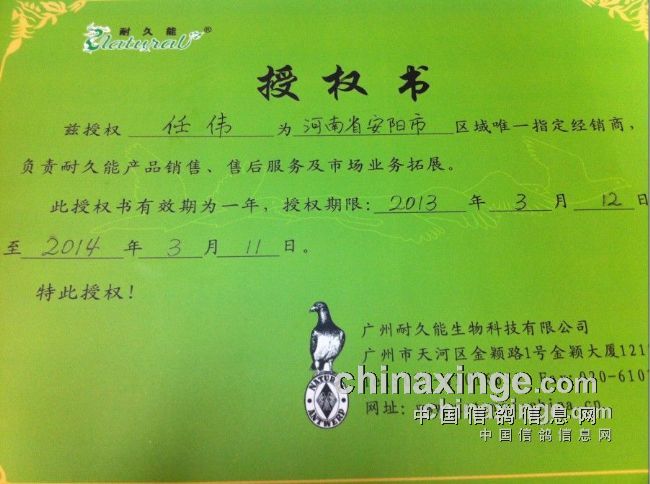 耐久能
Natural ®
授权书
兹授权 任伟 为 河南省安阳市 区域唯一指定经销商，
负责耐久能产品销售、售后服务及市场业务拓展。
此授权书有效期为一年，授权期限：2013 年 3 月 12 日
至 2014 年 3 月 11 日。
特此授权！
广州耐久能生物科技有限公司
广州市天河区金颖路1号金颖大厦121
Fax:020-610
网址：
NATURAL
ANTWERP
chinaxinge.com
中国信鸽信息网
chinaxinge.com
中国信鸽信息网